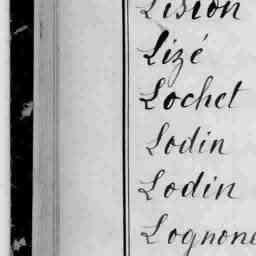 Lision
Lizé
Lochet
Lodin
Lodin
Lognone